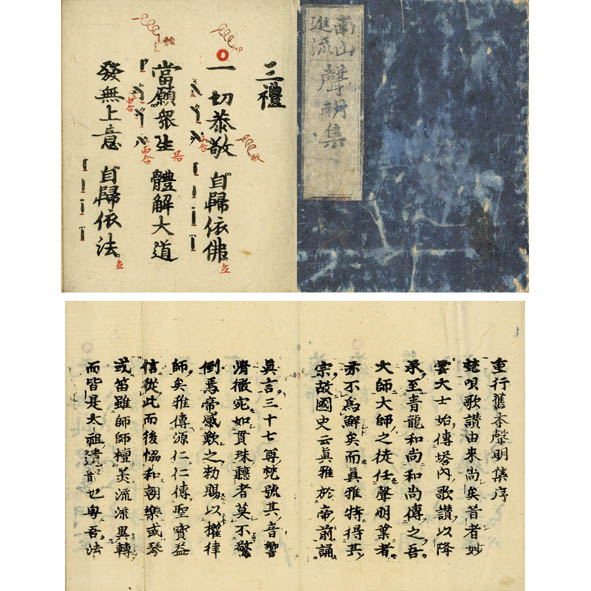 南山
進流
聲明集
三禮
一切恭敬 自歸依佛
當願衆生 體解大道
發無上意 自歸依法
重行舊本聲明集序
梵唄歌讃由来尚矣昔者妙
雲大士始傳塔内歌讃以降
承至青龍和尚和尚傳之吾
大師大師之徒任聲明業者
亦不為解矣而真雅特得其
宗故國史云真雅於帝前誦
真言三十七尊梵號其音響
清徹宛如貫珠聽者莫不驚
倒焉帝感歎之勅賜以權律
師矣雅傳源仁仁傳聖寶益
信從此而後恊和朝樂或琴
或笛雖師師檀美流派異轉
而皆是太祖遺韵也粤吾法